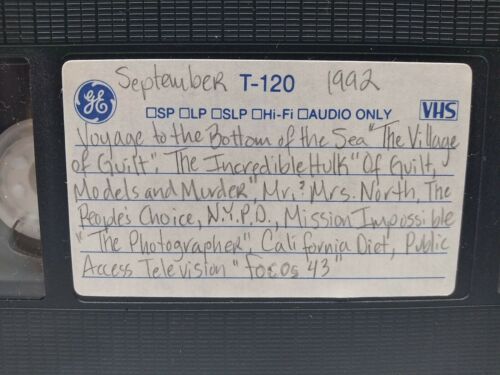 September T-120 1992
GE
□SP □LP □SLP □Hi-Fi □AUDIO ONLY VHS
Voyage to the Bottom of the Sea "The Village
of Guilt", The Incredible Hulk "Of Guilt,
Models and Murder", Mr. & Mrs. North, The
People's Choice, N.Y.P.D., Mission Impossible
"The Photographer", California Diet, Public
Access Television "focos 43"